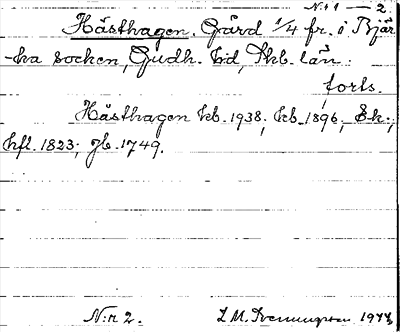 N:r 1 — 2.
Hästhagen. Gård 1/4 fr. i Björ
-ka socken, Gudh. tid, Kkb. län.
forts.
Hästhagen kb. 1938; kb. 1896; Sk.;
hfl. 1823; jb. 1749.
N:r 2. L M. Svenungsson 1944